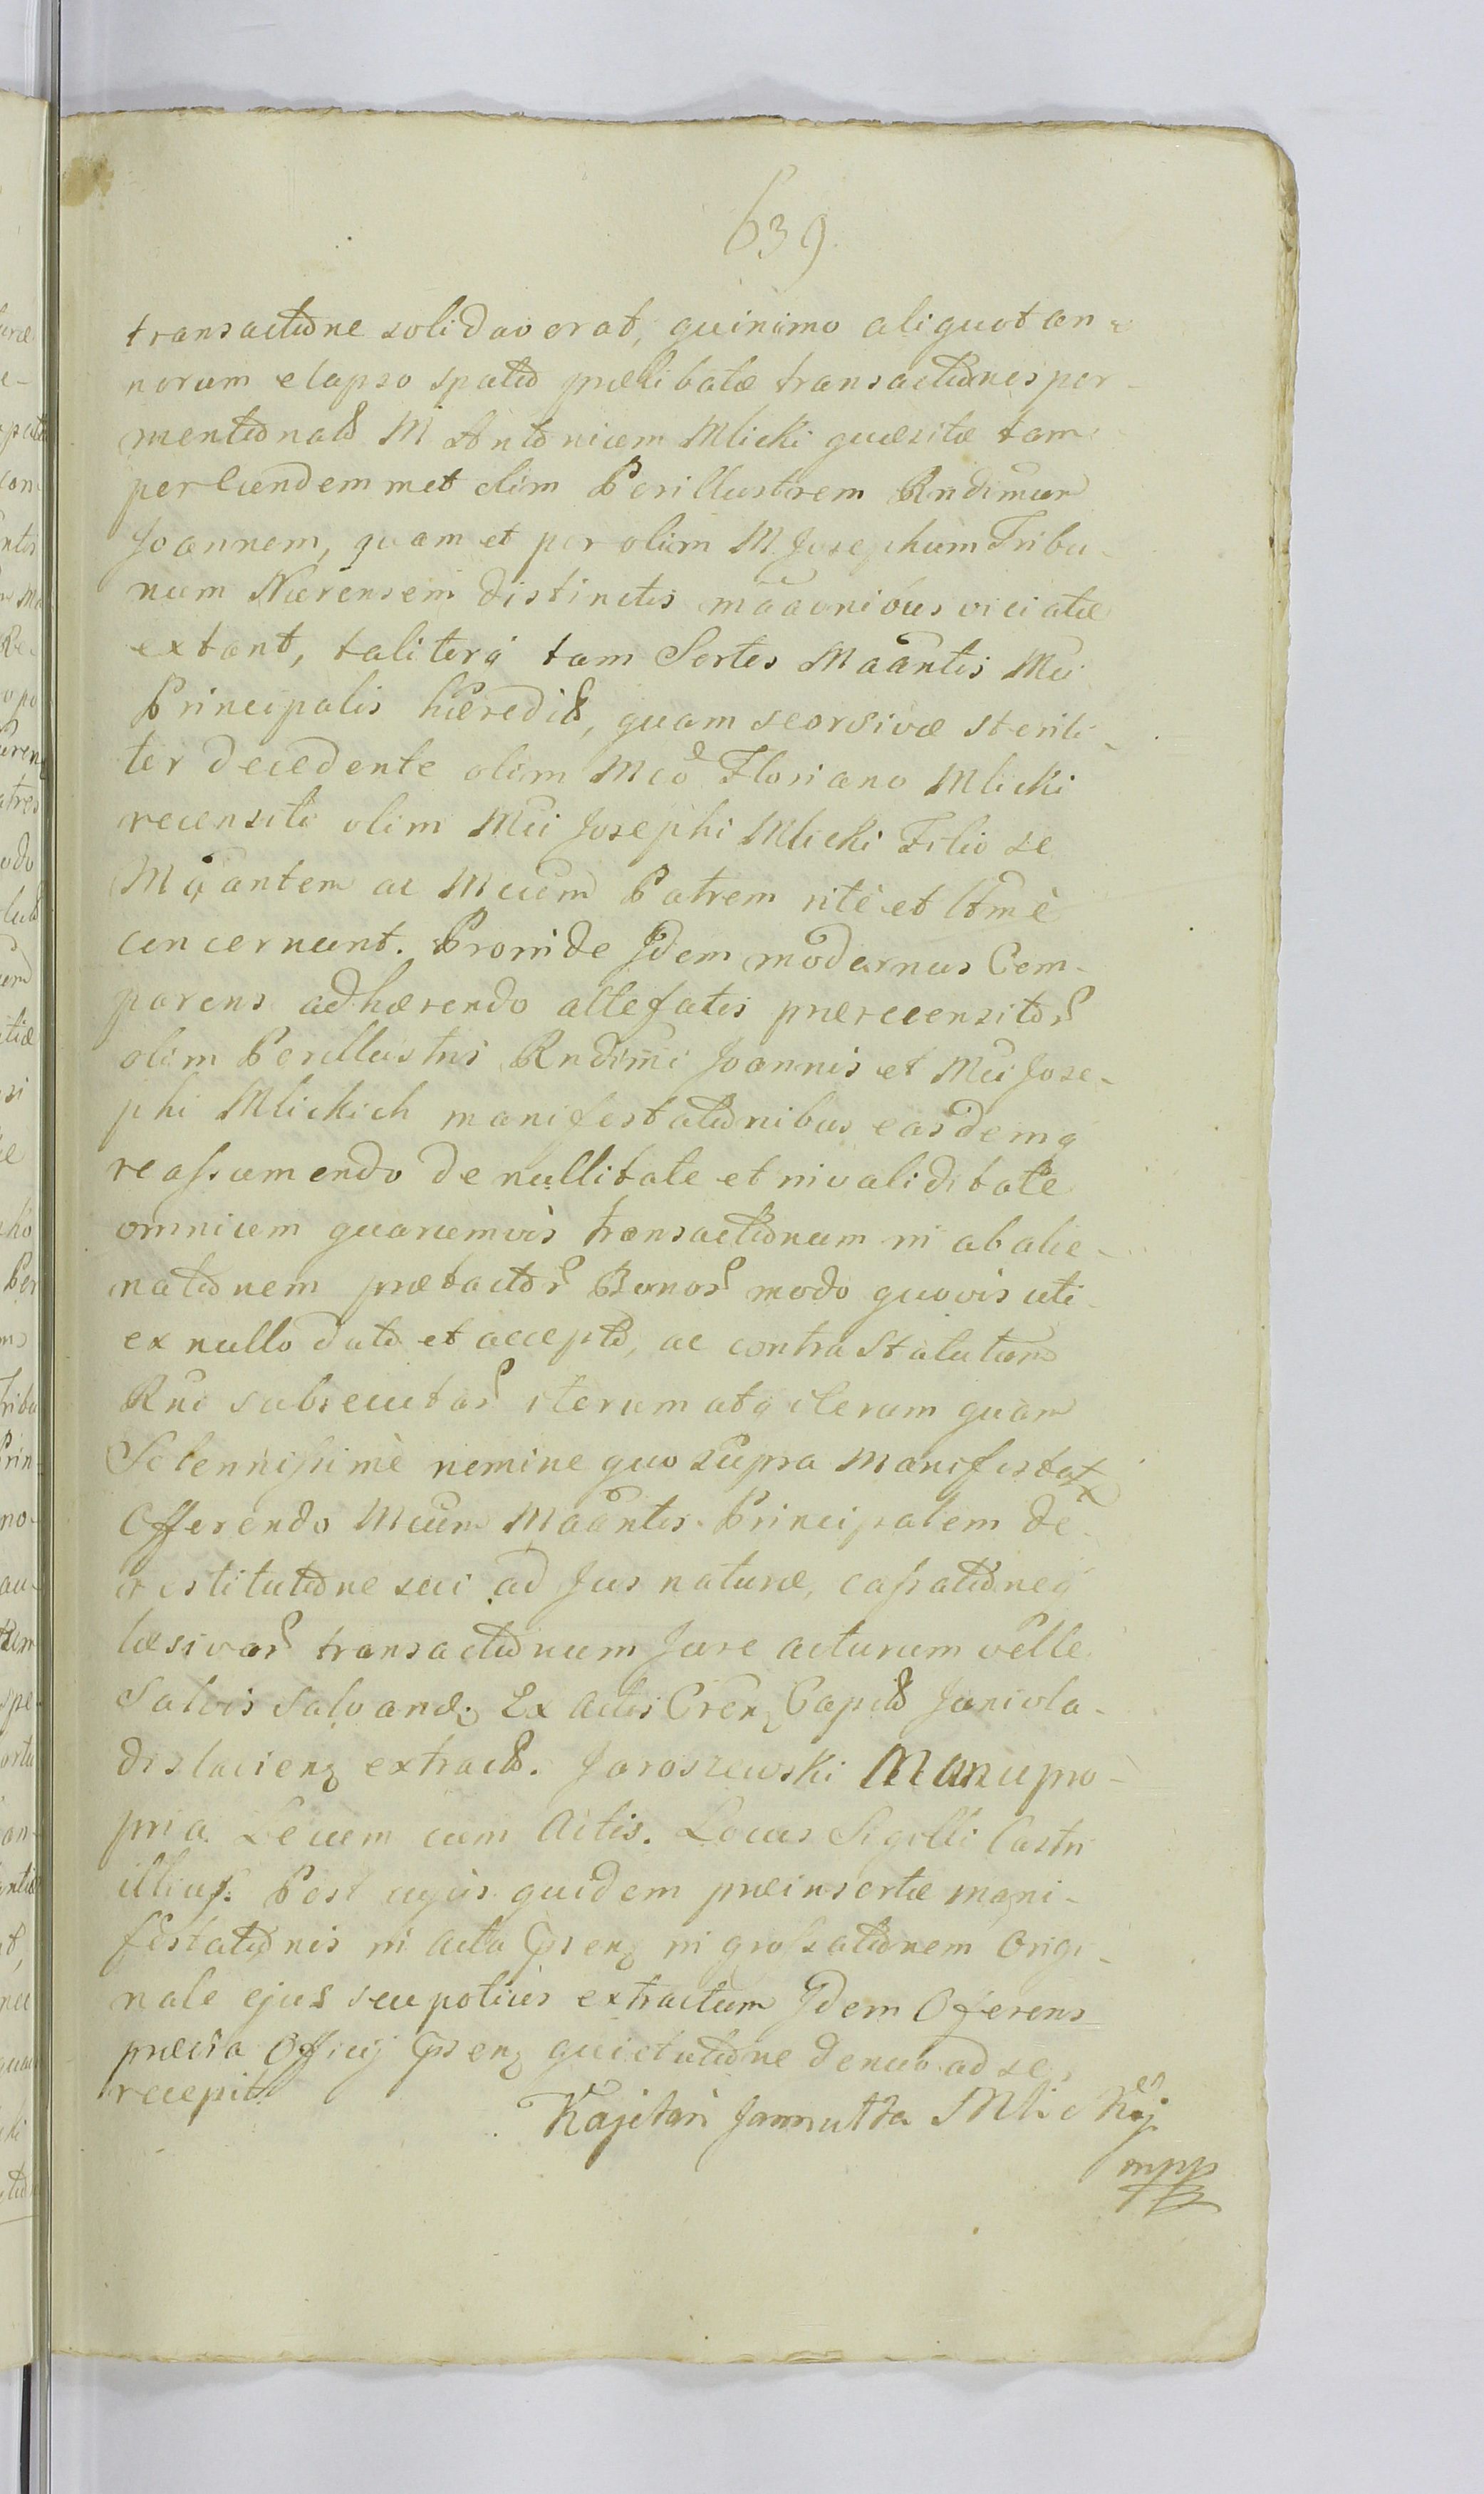 639
transactione solidaverat, quinimo aliquot an-
norum elapso spatio prælibatæ transactiones per
mentionatũ M Antonium Mlicki quæsitæ tam
per Eundemmet olim Perillustrem Rndimum
Joannem, quam et per olim M. Josephum Tribu-
num Nurensem distinctis mãaonibus viciatæ
extant, taliterq̃ tam Sortes Mãantis Mei
Principalis hæredis, quam seorsivæ sterili-
ter decedente olim Mcõ Floriano Mlicki
recensiti olim Mci Josephi Mlicki Filio se
Mãantem ac Mcum Patrem ritè et lt̃mè
concernunt. Proinde Idem modernus Com-
parens adhærendo allegatis prærecensitor̃
olim Perillustris Rndimi Joannis et Mci Jose-
phi Mlickich manifestationibus easdemq̃
reassumendo de nullitate et invaliditate
omnium quarumvis transactionum in abalie-
nationem prætactor̃ Bonor̃ modo quovis uti
ex nullo dato et accepto, ac contra Statutum
Rni subsecutar̃ iterum atq̃ iterum quam
Solennissimè nomine quo supra Manifestatr
Offerendo Mcum Mãantis Principalem de
restitutione sui ad Jus naturæ, cassationeq̃
læsivar̃ transactionum Jure acturum velle
Salvis Salvandꝫ Ex Actis Crenꝫ Capitũ Junivla-
dislaviens̃ extract̃. Jaroszewski Manu pro-
pria Lecum cum Actis. Locus Sigilli Castri
illius. Post cujus quidem præinsertæ mani-
festationis in Acta Prenꝫ ingrossationem Origi-
nale ejus seu potius extractum Idem Offerens
prævia Officij Prenꝫ quietatione denuo ad se
recepit.
Kajetan Jannutta Mlicki
mpp